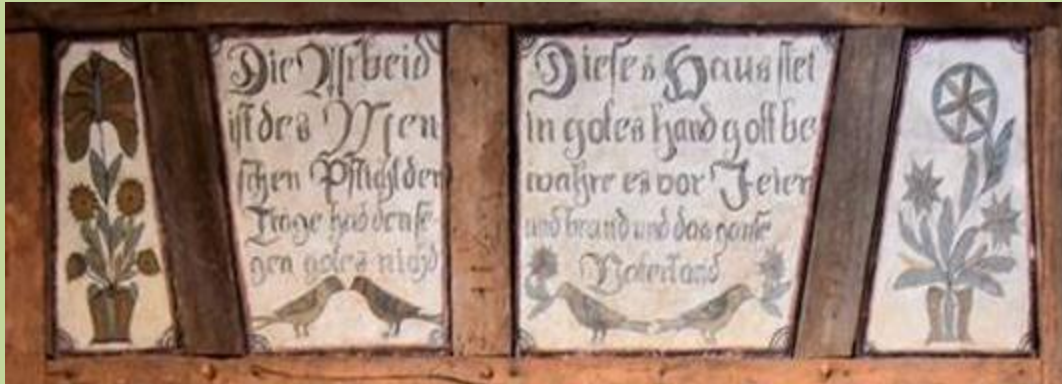 Die Arbeid
ist des Men
schen Pflicht der
Trage had den se-
gen gotes nichd
Dieses Haus stet
in gotes hand gott be
wahre es vor Feier
und brand und das ganse
Vaterland